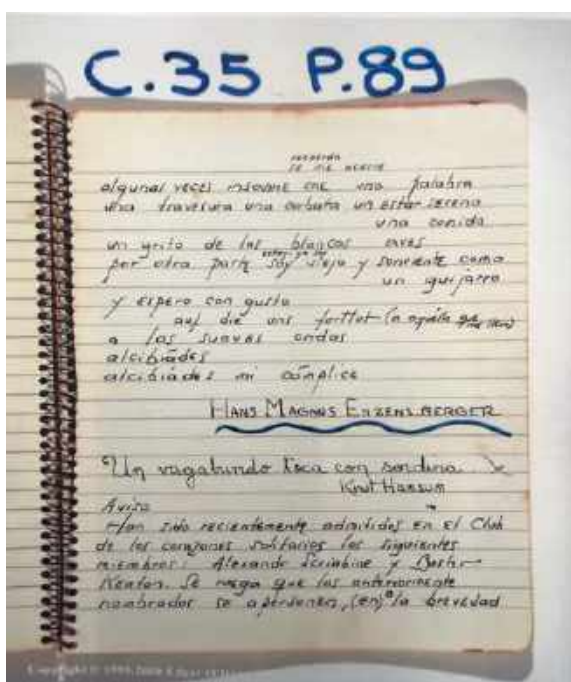 C.35 P.89
se me ocurre
algunas veces una palabra
una travesura una un estar serena
una comida
un grito de las blancas aves
por otra parte soy viejo y sonriente como
un guijarro
y espero con gusto
auf die uns (a aquella que
a las suaves ondas
alcibíades
alcibiades mi cómplice
HANS MAGNUS ENZENSBERGER
Un vagabundo toca con sordina.
Knut Hamsun
Aviso
Han sido recientemente admitidos en el Club
de los corazones solitarios los siguientes
miembros: Alexandr Scriabine y Buster
Keaton. Se ruega que los anteriormente
nombrados se apersonen, (en) a la brevedad
Copyright © 1999,2000